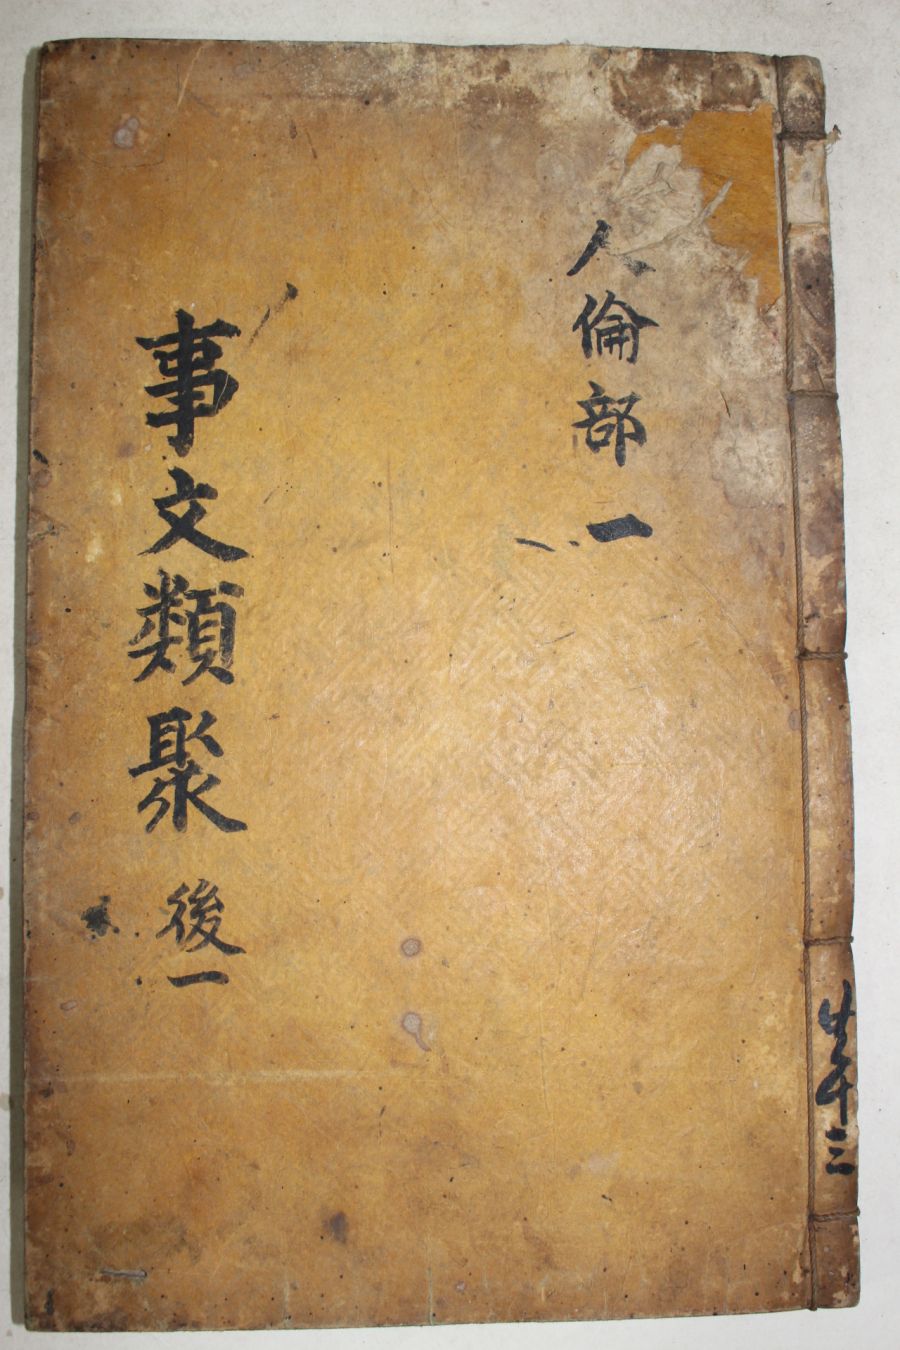 人倫部 一
事文類聚 後一